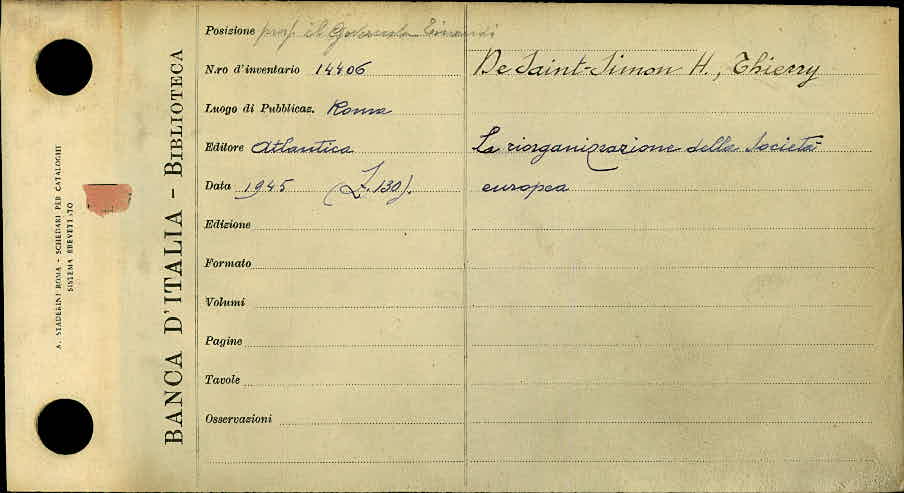 A. STADERINI ROMA - SCHEDARI PER CATALOGHI
SISTEMA BREVETTATO
BANCA D'ITALIA - BIBLIOTECA
Posizione
N.ro d'inventario 14406
Luogo di Pubblicaz. Roma
Editore Atlantica
Data 1945 (L. 130).
Edizione
Formato
Volumi
Pagine
Tavole
Osservazioni
De Saint-Simon H., Thierry
La riorganizzazione della Società
europea